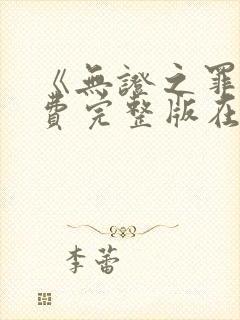 《無證之罪
費完整版在
李蕾